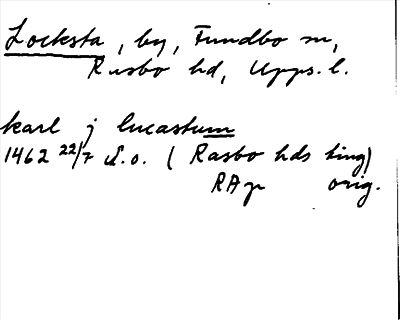 Locksta, by, Fundbo sn,
Rasbo hd, Upps. l.
karl j lucastum
1462 22/7 u.o. (Rasbo hds ting)
RAp orig.